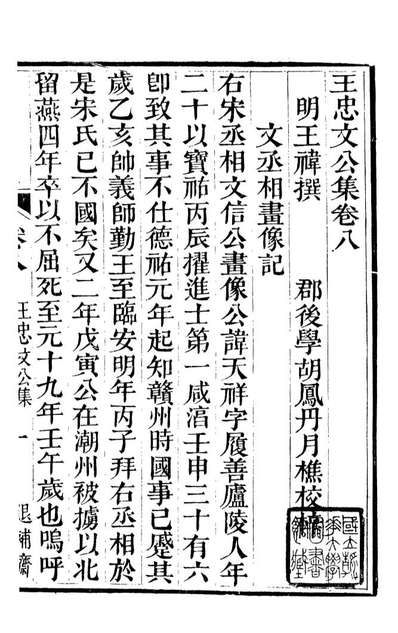 王忠文公集卷八
明王禕撰 郡後學胡鳳丹月樵校梓
文丞相畫像記
右宋丞相文信公畫像公諱天祥字履善廬陵人年
二十以寶祐丙辰擢進士第一咸淳壬申三十有六
卽致其事不仕德祐元年起知贛州時國事已蹙其
歲乙亥帥義師勤王至臨安明年丙子拜右丞相於
是宋氏已不國矣又二年戊寅公在潮州被擄以北
留燕四年卒以不屈死至元十九年壬午歲也嗚呼
卷八 王忠文公集 一 退補齋